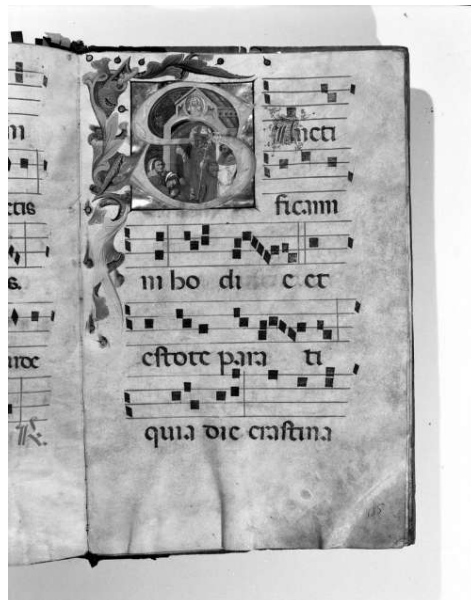 ctis
s.
Sancti
ficami
ni ho di e et
estote para ti
quia die crastina